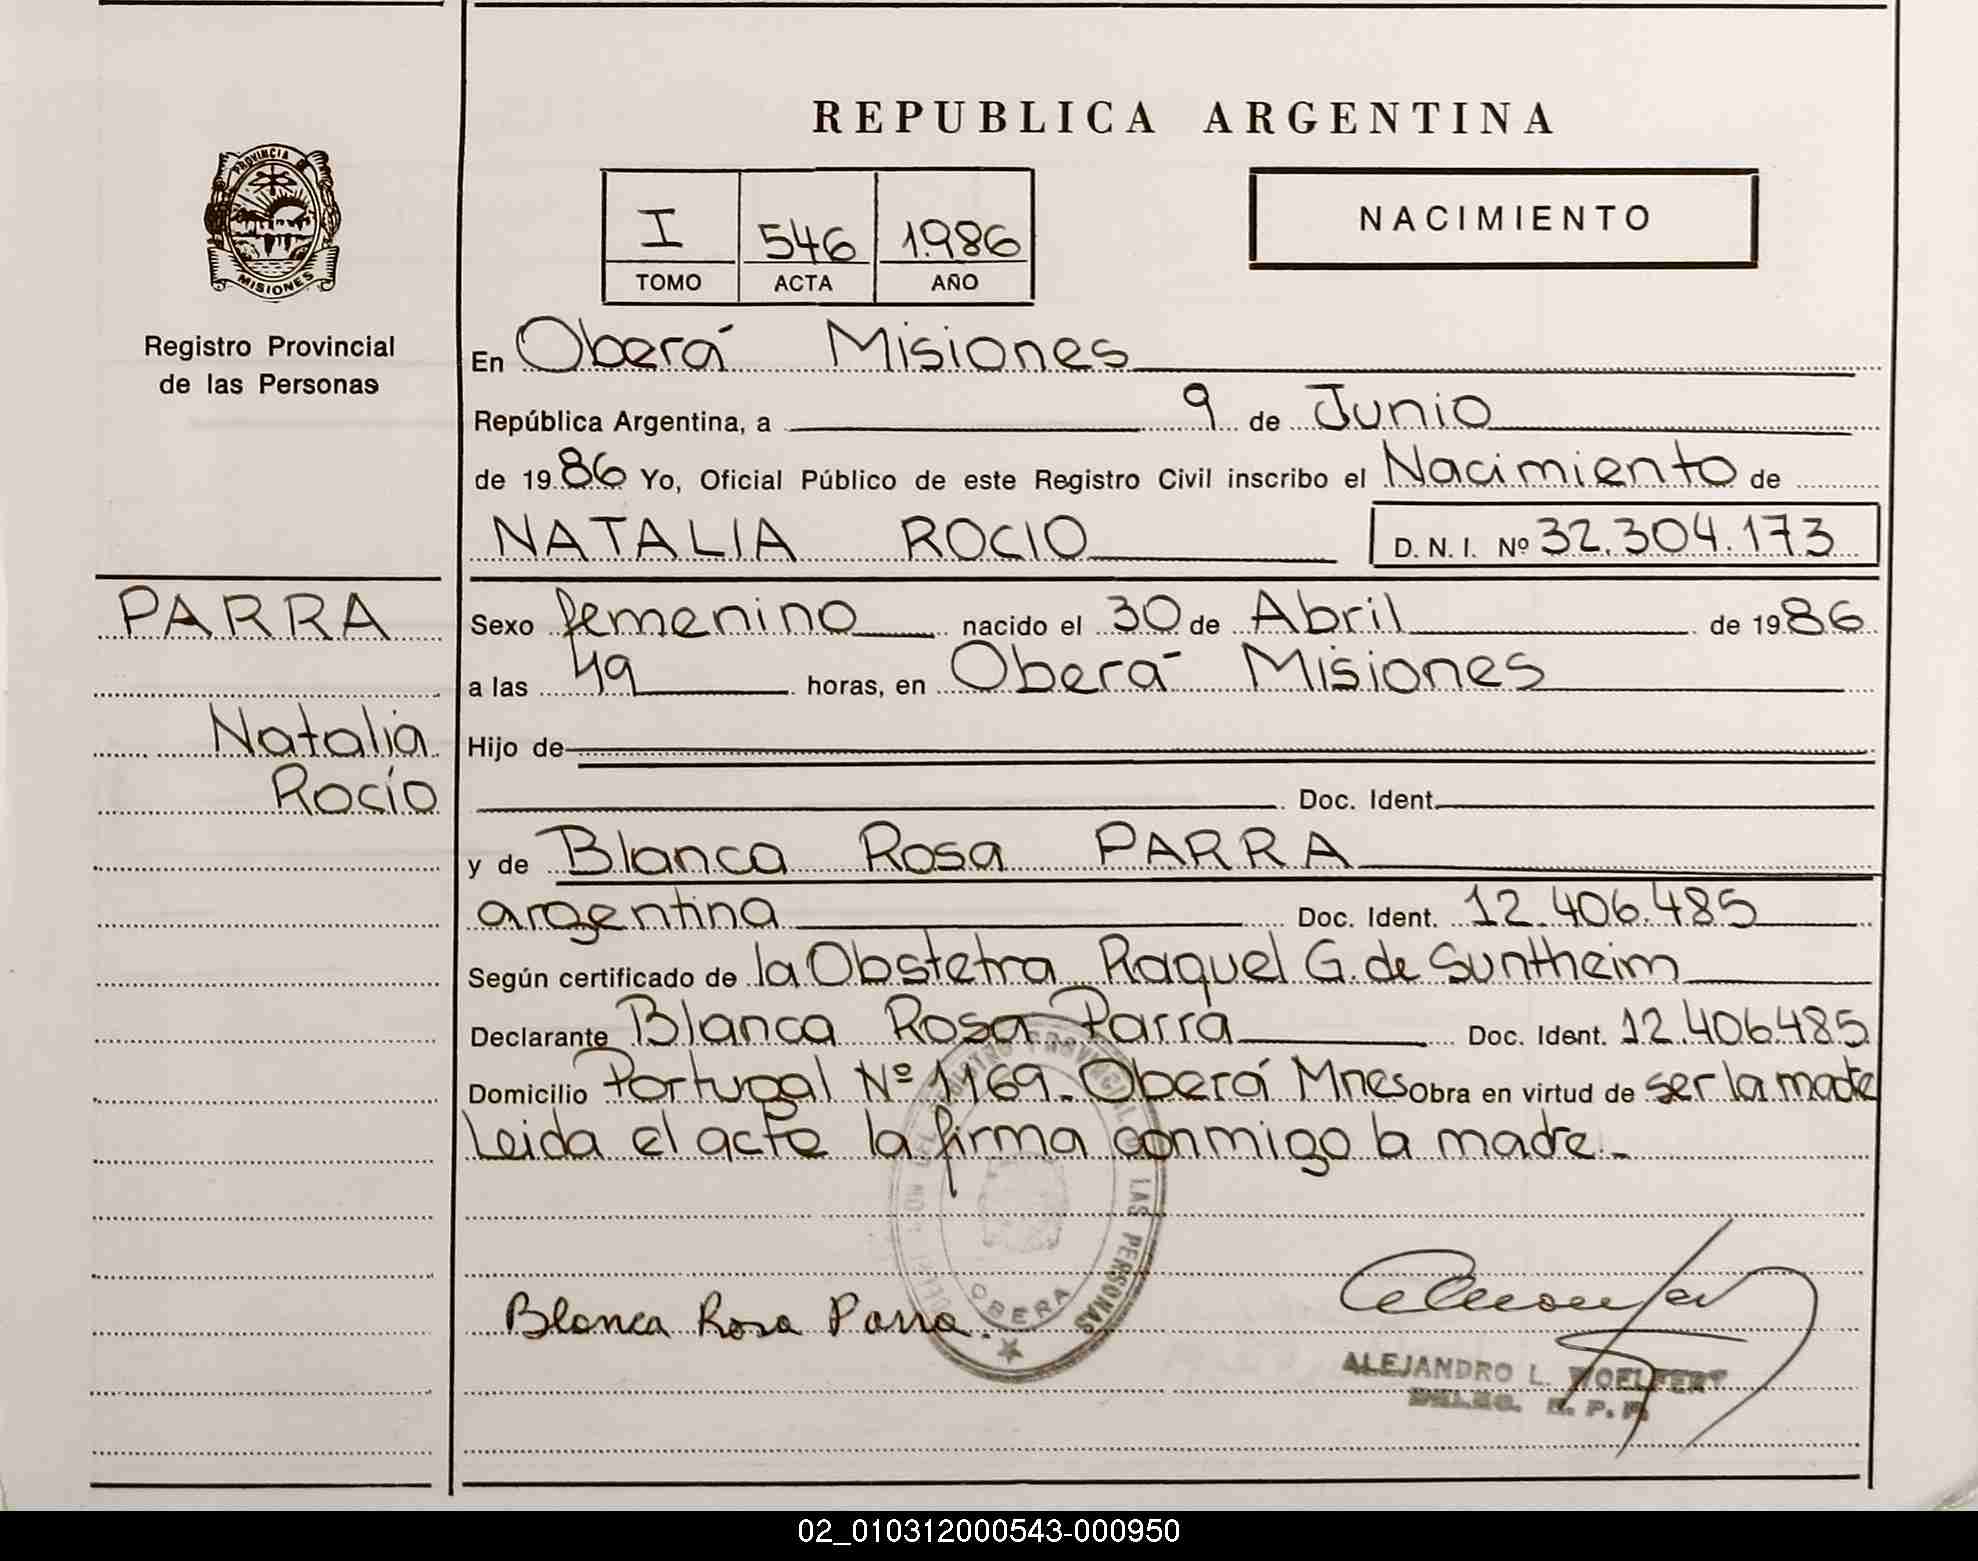 REPUBLICA ARGENTINA
PROVINCIA DE
MISIONES
Registro Provincial
de las Personas
I 546 1.986
TOMO ACTA AÑO
NACIMIENTO
En Oberá Misiones
República Argentina, a 9 de Junio
de 1986 Yo, Oficial Público de este Registro Civil inscribo el Nacimiento de
NATALIA ROCIO D. N. I. Nº 32.304.173
PARRA
Natalia
Rocío
Sexo femenino nacido el 30 de Abril de 1986
a las 19 horas, en Oberá Misiones
Hijo de
Doc. Ident.
y de Blanca Rosa PARRA
argentina Doc. Ident. 12.406.485
Según certificado de la Obstetra Raquel G. de Suntheim
Declarante Blanca Rosa Parra Doc. Ident. 12.406.485
Domicilio Portugal Nº 1169. Oberá Mnes Obra en virtud de ser la madre
Leida el acta la firma conmigo la madre.-
REGISTRO PROVINCIAL DE LAS PERSONAS
OBERA
Blanca Rosa Parra.
ALEJANDRO L. WOELFERT
DELEG. R. P. P.
02_010312000543-000950